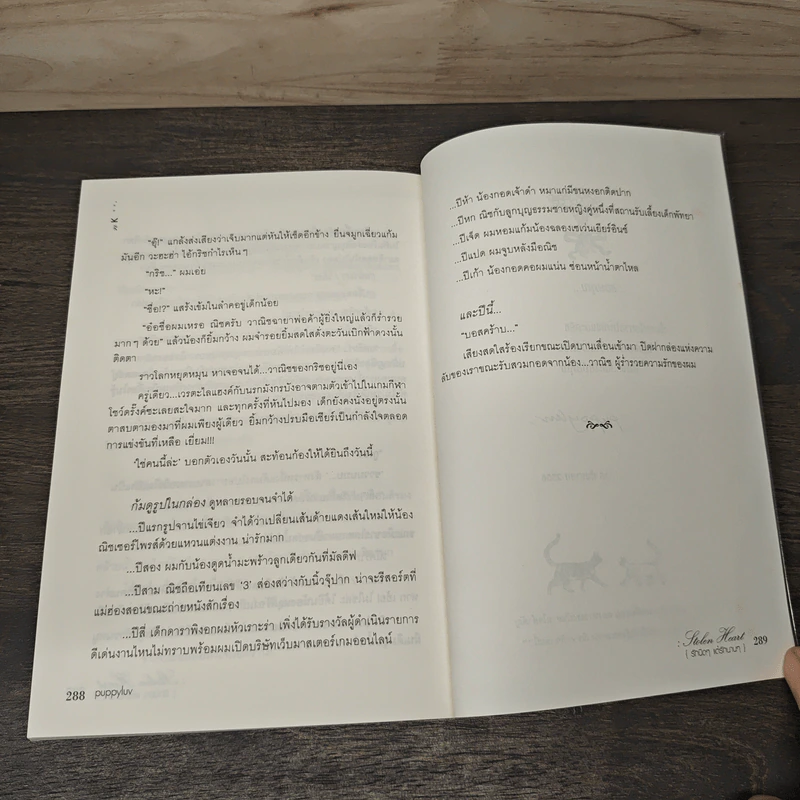 "อุ๊!" แกล้งส่งเสียงว่าเจ็บมากแต่หันให้เช็ดอีกข้าง ยื่นจมูกเฉี่ยวแก้ม
มันอีก วะฮะฮ่า ไอ้กริชกำไรเห็นๆ
"กริช..." ผมเอ่ย
"หะ!"
"ชื่อ!?" แสร้งเข้มในลำคอขู่เด็กน้อย
"อ๋อชื่อผมเหรอ ณิชครับ วาณิชฉายาพ่อค้าผู้ยิ่งใหญ่แล้วก็ร่ำรวย
มากๆ ด้วย" แล้วน้องก็ยิ้มกว้าง ผมจำรอยยิ้มสดใสดั่งตะวันเบิกฟ้าดวงนั้น
ติดตา
ราวโลกหยุดหมุน หาเจอจนได้...วาณิชของกริชอยู่นี่เอง
ครู่เดียว...เวรตะไลแฮงค์กับนรกมังกรบังอาจตามตัวเข้าไปในเกมกีฬา
โชว์ดรั๊งค์ซะเลยสะใจมาก และทุกครั้งที่หันไปมอง เด็กยังคงนั่งอยู่ตรงนั้น
ตาสบตามองมาที่ผมเพียงผู้เดียว ยิ้มกว้างปรบมือเชียร์เป็นกำลังใจตลอด
การแข่งขันที่เหลือ เยี่ยม!!!
'ใช่คนนี้ล่ะ' บอกตัวเองวันนั้น สะท้อนก้องให้ได้ยินถึงวันนี้
ก้มดูรูปในกล่อง ดูหลายรอบจนจำได้
...ปีแรกรูปจานไข่เจียว จำได้ว่าเปลี่ยนเส้นด้ายแดงเส้นใหม่ให้น้อง
ณิชเซอร์ไพรส์ด้วยแหวนแต่งงาน น่ารักมาก
...ปีสอง ผมกับน้องดูดน้ำมะพร้าวลูกเดียวกันที่มัลดีฟ
...ปีสาม ณิชถือเทียนเลข '3' ส่องสว่างกับนิ้วจุ๊ปาก น่าจะรีสอร์ตที่
แม่ฮ่องสอนขณะถ่ายหนังสักเรื่อง
...ปีสี่ เด็กดาราพิงอกผมหัวเราะร่า เพิ่งได้รับรางวัลผู้ดำเนินรายการ
ดีเด่นงานไหนไม่ทราบพร้อมผมเปิดบริษัทเว็บมาสเตอร์เกมออนไลน์
288 puppyluv
...ปีห้า น้องกอดเจ้าดำ หมาแก่มีขนหงอกติดปาก
...ปีหก ณิชกับลูกบุญธรรมชายหญิงคู่หนึ่งที่สถานรับเลี้ยงเด็กพัทยา
...ปีเจ็ด ผมหอมแก้มน้องฉลองเซเว่นเยียร์อินช์
...ปีแปด ผมจูบหลังมือณิช
...ปีเก้า น้องกอดคอผมแน่น ซ่อนหน้าน้ำตาไหล
และปีนี้...
"บอสคร้าบ..."
เสียงสดใสร้องเรียกขณะเปิดบานเลื่อนเข้ามา ปิดฝากล่องแห่งความ
ลับของเราขณะรับสวมกอดจากน้อง...วาณิช ผู้ร่ำรวยความรักของผม
: Stolen Heart 289
[ รักนิดๆ แต่รักนานๆ ]